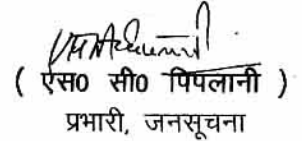 ( एस0 सी0 पिपलानी )
प्रभारी, जनसूचना